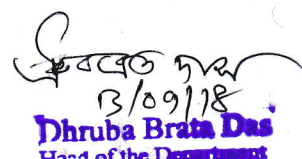 ধ্রুবব্রত দাস
13/09/18
Dhruba Brata Das
Head of the Department